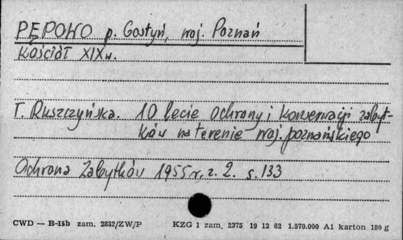 PĘPOWO p. Gostyń, woj. Poznań
Kościół XIX w.
T. Ruszczyńska. 10 lecie ochrony i konserwacji zabyt-
ków na terenie woj. poznańskiego
Ochrona Zabytków 1955 r. z. 2. s. 133
CWD — B-15b zam. 2832/ZW/P KZG 1 zam. 2375 19 12 62 1.570.000 A1 karton 180 g